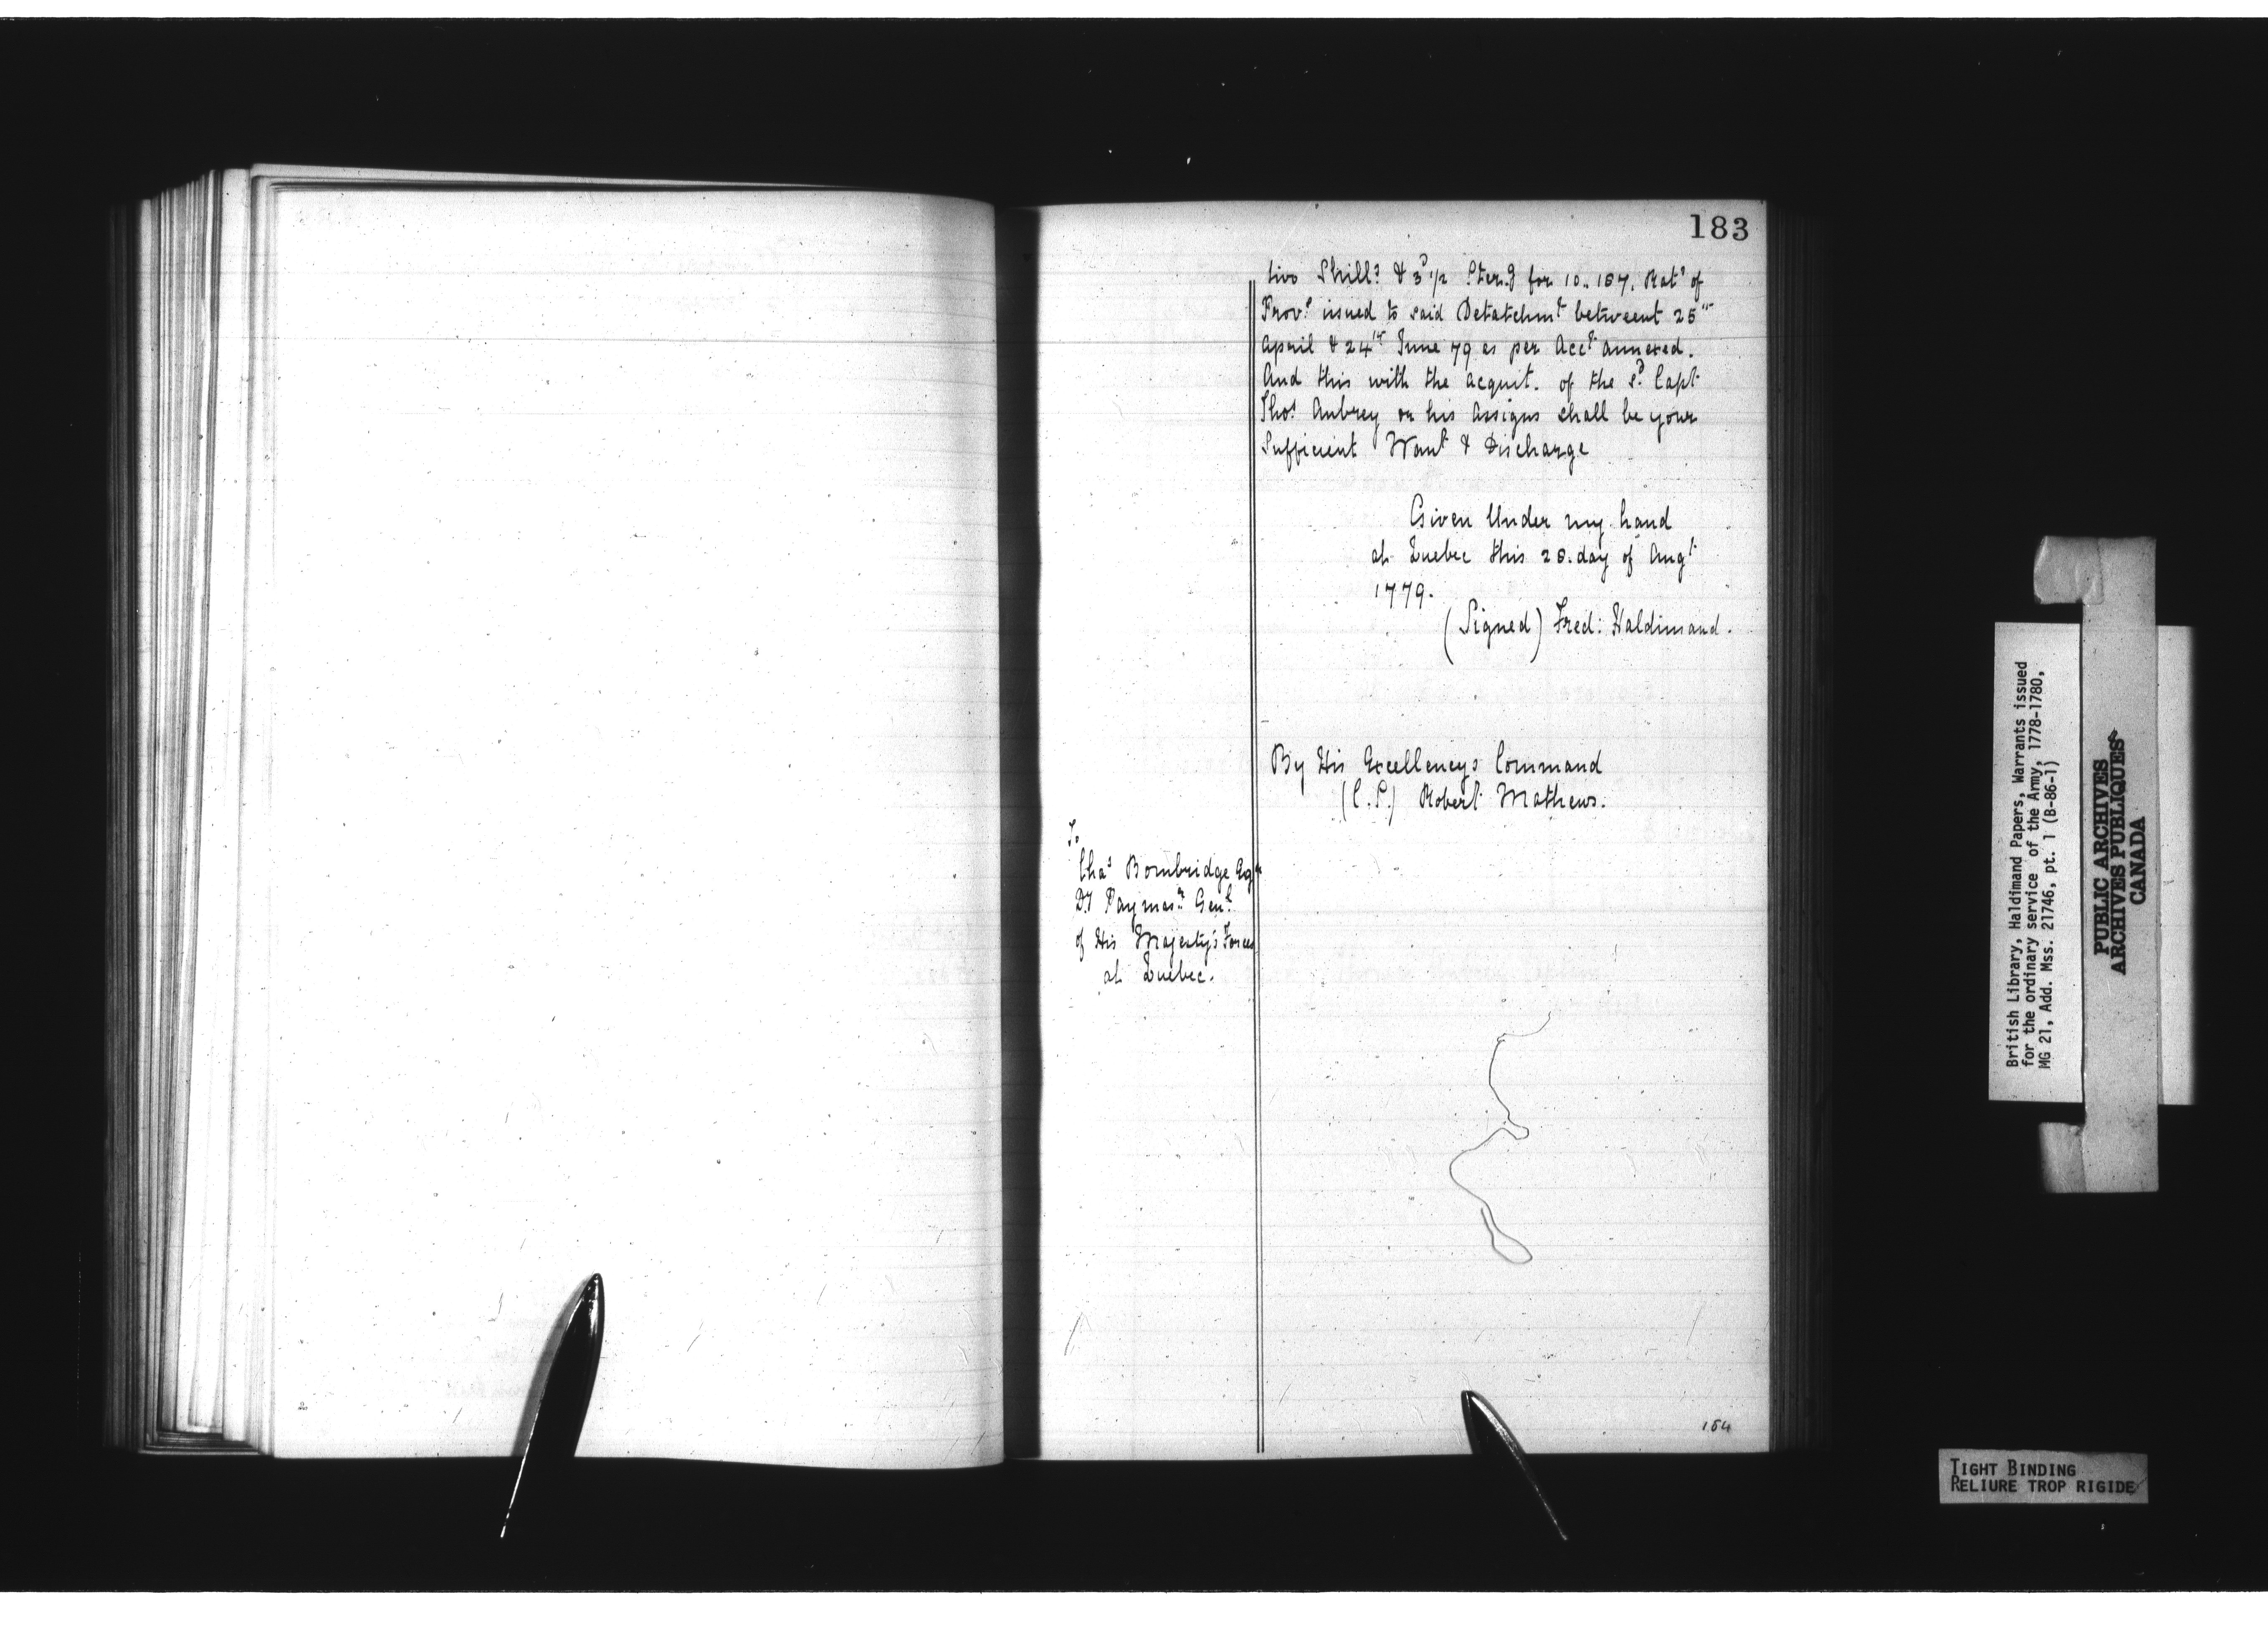 183
two Shill.s & 3.d 1/2 Ster.g for 10..187. Rat.s of
Prov.s issued to said Detatchm.t betweent 25th
April & 24th June 79 as per Acc.t annexed.
And this with the acquit. of the s.d Capt
Tho.s Aubrey or his Assigns shall be your
Sufficient Warr.t & Discharge
Given Under my hand
at Quebec this 28. day of Aug.t
1779.
(Signed) Fred: Haldimand.
By His Excellencys Command
(C.S.) Robert Mathews.
To
Cha.s Bombridge Esq.r
D.y Paymas.r Gen.l
of His Majesty's Forces
at Quebec.
184
British Library, Haldimand Papers, Warrants issued
for the ordinary service of the Army, 1778-1780,
MG 21, Add. Mss. 21746, pt. 1 (B-86-1)
PUBLIC ARCHIVES
ARCHIVES PUBLIQUES
CANADA
TIGHT BINDING
RELIURE TROP RIGIDE